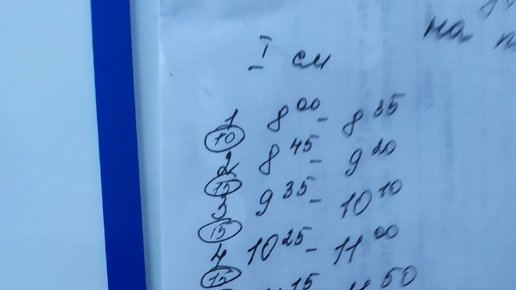 на
I см
1 8⁰⁰ - 8³⁵
10
2 8⁴⁵ - 9²⁰
15
3 9³⁵ - 10¹⁰
15
4 10²⁵ - 11⁰⁰
15